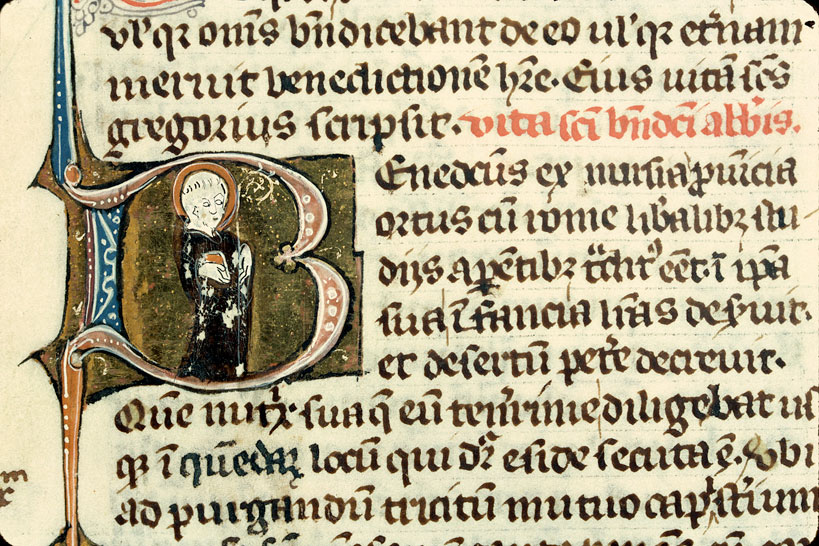 ul' qr om̄s bn̄dicebant de eo ul' qr etn̄am
meruit benedictionē hr̄e. Eius uitā scs̄
gregorius scripsit. vita sci bn̄dci abbis.
Enedcūs ex nursia puīcia
ortus cū rome libalibz stu
dijs a pentibz t̄dit eēt. ī ip̄a
sua īfancia lr̄as deseruit.
et desertū petere decreuit.
Quē nutx sua q̄ eū tenerrime diligebat us
qz ī quēdā locū qui dr̄ eside secuta ē. Vbi
ad purgandū triticū mutuo capisterium